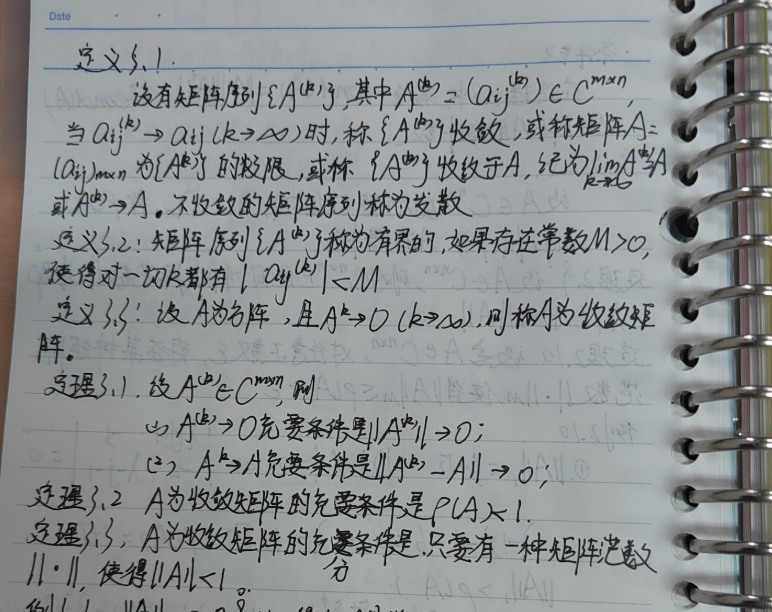 Date
定义3.1.
设有矩阵序列{A^(k)}, 其中A^(k) = (aij^(k)) ∈ C^m×n,
当 aij^(k) → aij (k→∞) 时, 称{A^(k)}收敛, 或称矩阵A=
(aij)m×n 为{A^(k)}的极限, 或称{A^(k)}收敛于A, 记为lim k→∞ A^(k)=A
或A^(k)→A。不收敛的矩阵序列称为发散
定义3.2: 矩阵序列{A^(k)}称为有界的, 如果存在常数M>0,
使得对一切k都有 | aij^(k) | < M
定义3.3: 设A为方阵, 且A^k→0 (k→∞), 则称A为收敛矩
阵。
定理3.1. 设A^(k)∈C^m×n 则
(1) A^(k)→0充要条件是||A^(k)||→0;
(2) A^k→A充要条件是||A^(k)-A||→0;
定理3.2 A为收敛矩阵的充要条件是ρ(A)<1.
定理3.3, A为收敛矩阵的充分条件是, 只要有一种矩阵范数
||·||, 使得||A||<1.